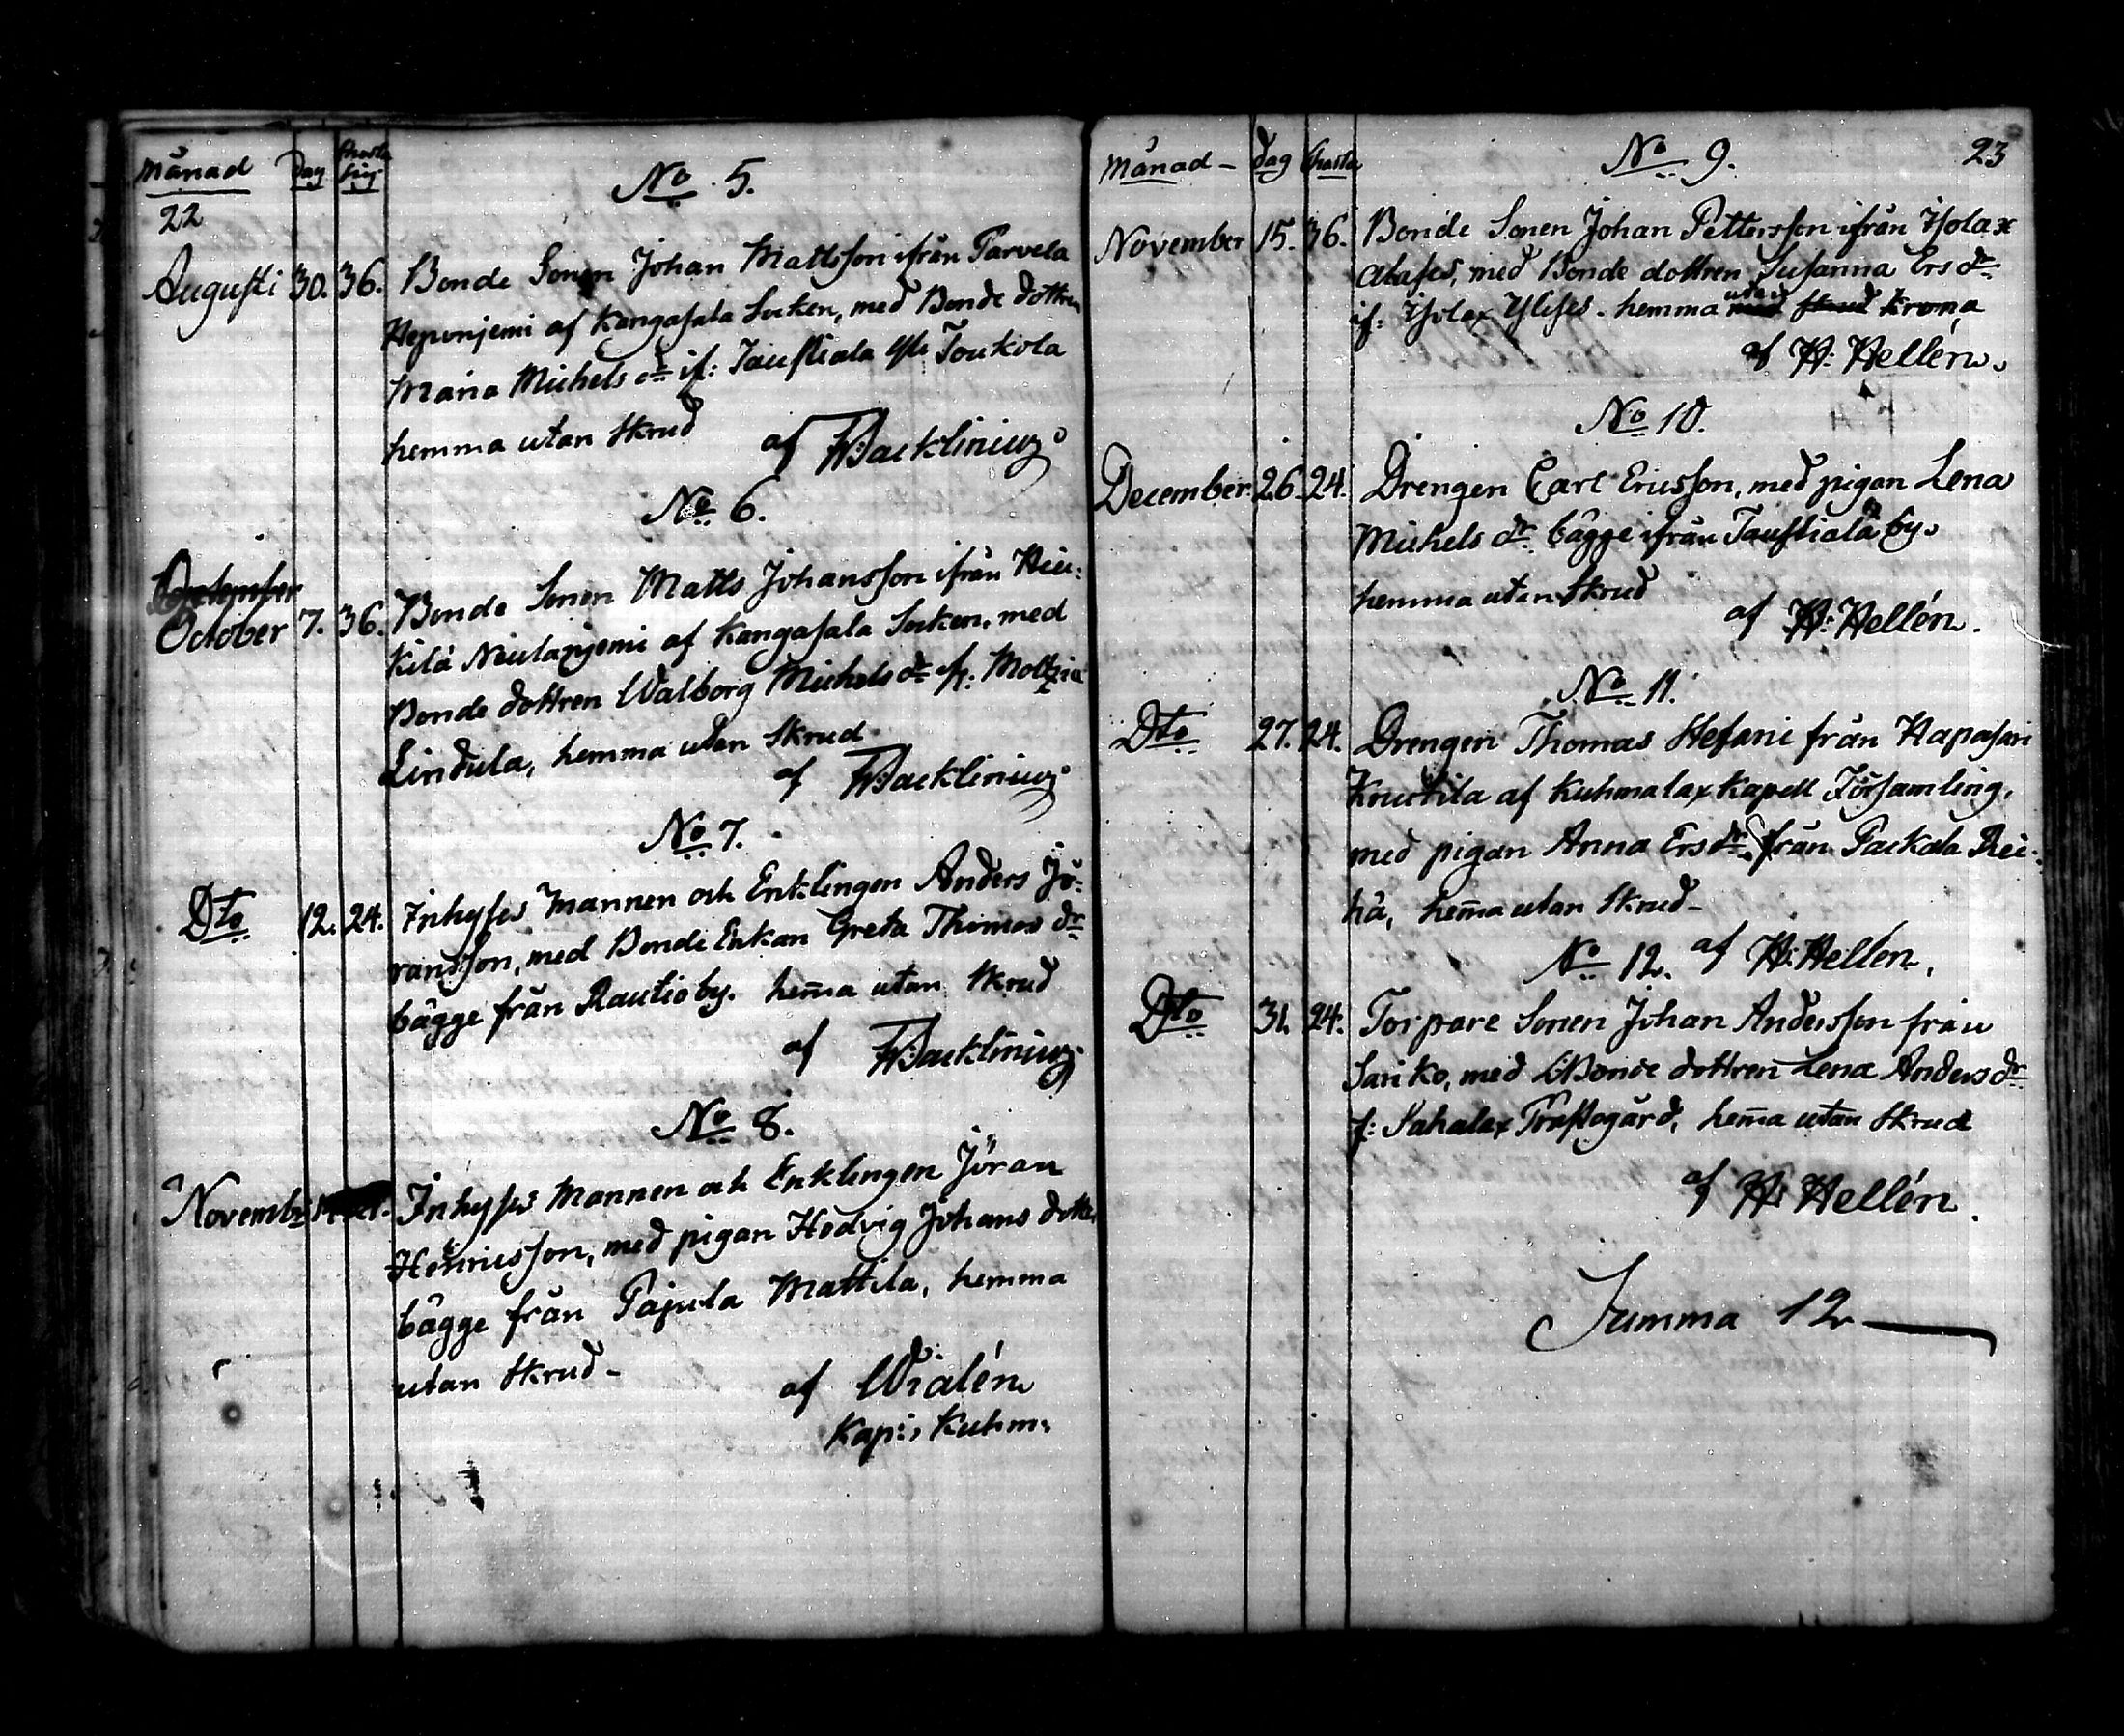 Månad Dag Charta Sig.
22
No 5.
Augusti 30. 36. Bonde Sonen Johan Mattsson ifrån Parvela
Heponjemi af Kangasala Socken, med Bonde dottren
Maria Michels dr if: Taustiala Yli Toukola
hemma utan Skrud af Backlinius
No 6.
September
October 7. 36. Bonde Sonen Matts Johansson ifrån Heic:
kilä Neulanjemi af Kangasala Socken, med
Bonde dottren Walborg Michels dr fr: Moltzia
Lindula, hemma utan Skrud
af Backlinius
No 7.
Dto 12. 24. Inhyses Mannen och Enklingen Anders Jö:
ransson, med Bonde Enkan Greta Thomas dr
bägge från Rautio by. hema utan Skrud
af Backlinius
No 8.
Novemb: Inhyses Mannen och Enklingen Jöran
Henricsson, med pigan Hedvig Johans dotter
bägge från Pajula Mattila, hemma
utan Skrud - af Widlén
Kap: i Kuhm:
Månad - dag Charta
No 9. 23
November 15. 36. Bonde Sonen Johan Pettersson ifrån Ysolax
Alases, med Bonde dottren Susanna Ers dr
if: Ysolax Ylises. hemma utan med Skrud Krona
af H: Hellén.
No 10.
December 26. 24. Drengen Carl Ericsson, med pigan Lena
Michels dr bägge ifrån Taustiala by.
hemma utan Skrud
af H: Hellén.
No 11.
Dto 27. 24. Drengen Thomas Stefani från Hapasari
Knuutila af Kuhmalax Kapell Församling,
med pigan Anna Ers dr från Packala Rei:
hä, hema utan Skrud -
No 12. af H: Hellén.
Dto 31. 24. Torpare Sonen Johan Andersson från
Sariko, med Bonde dottren Lena Anders dr
f: Sahalax Prästegård, hema utan Skrud
af H: Hellén.
Summa 12